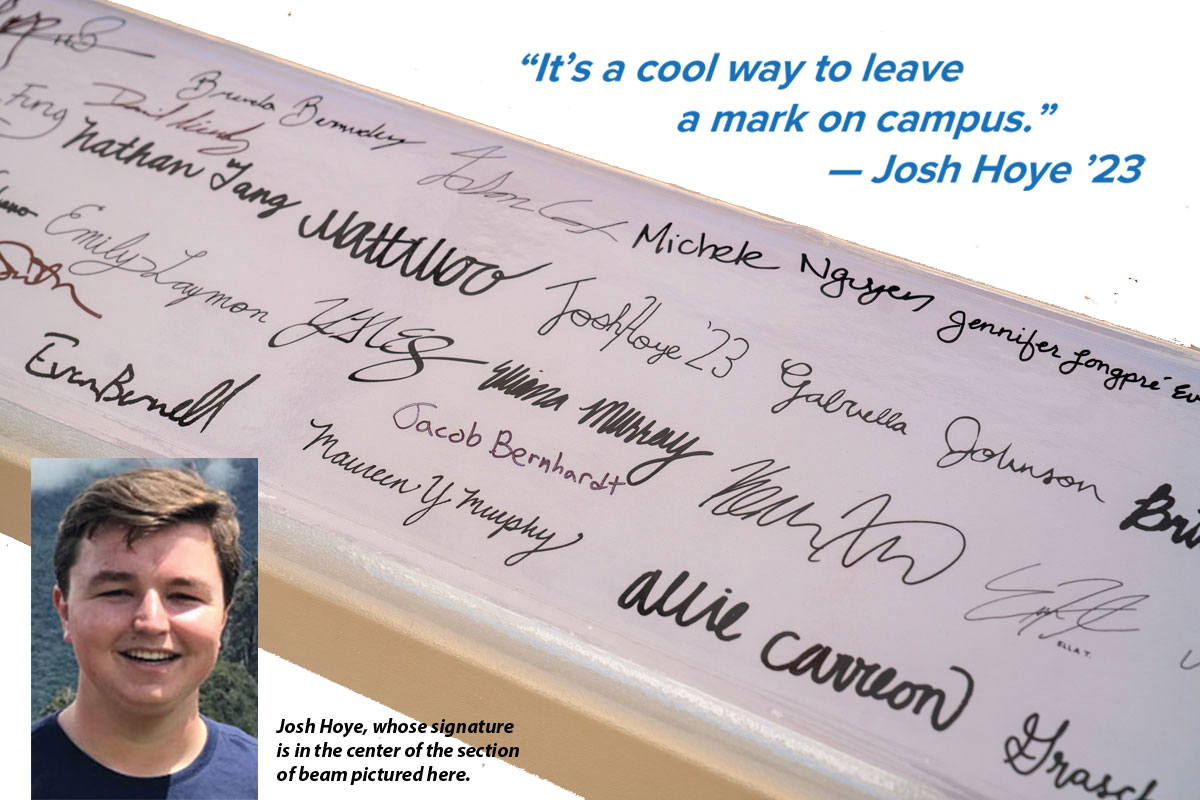 “It’s a cool way to leave
a mark on campus.”
— Josh Hoye ’23
Brenda Bermudez
Fing
David
Nathan Tang
Matt Woo
Michele Nguyen
Jennifer Longpré
Emily Laymon
Josh Hoye '23
Gabriella Johnson
Evan Bernell
Murray
Jacob Bernhardt
Maureen Y Murphy
Bri
ELLA T.
allie carreon
Grasch
Josh Hoye, whose signature
is in the center of the section
of beam pictured here.